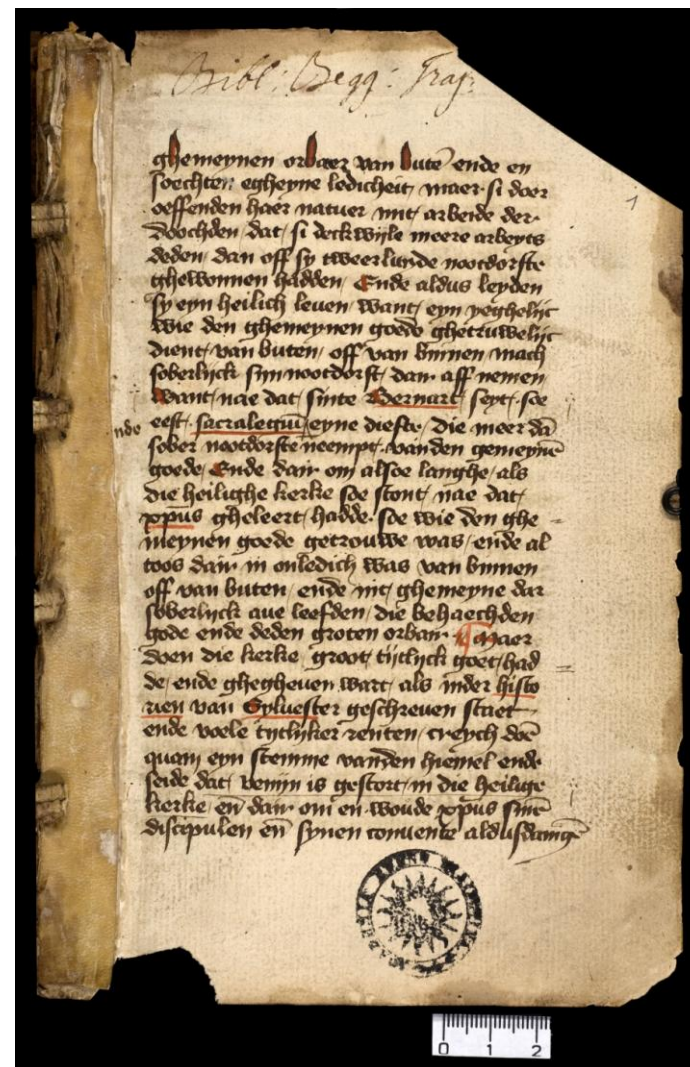 Bibl: Begg: Traj:
1
ghemeynen orbaer van butē ende en
soechten egheyne ledicheit, maer si doer
oeffenden haer natuer mit arbeide der
doochden, dat si deckwijle meere arbeyts
deden, dan off sy tweerlunde nootdorfte
ghewonnen hadden, Ende aldus leyden
sy eyn heilich leuen, want eyn yeghelijc
wie den ghemeynen goede ghetruwelijc
dient, van buten, off van binnen, mach
soberlijck sijn nootdorft, dair aff nemen,
Want, nae dat sinte Bernart, seyt, soe
eest, sacralegiū, eyne diefte, die meer dā
nde
sober nootdorfte neempt, vanden gemeynē
goede, Ende dair om alsoe langhe, als
die heilighe kerke soe stont, nae dat,
xp̄us gheleert, hadde, soe wie den ghe
meynen goede getrouwe was, ende al
toos dair in onledich was van binnen
off van buten, ende mit, ghemeyne dar
soberlijck aue leefden, die behaechden
gode ende deden groten orbair ¶ Maer
doen die kerke, groot, tijtlijck goet, had
de, ende ghegheuen wart, als inder histo
rien van Syluester geschreuen staet
ende voele tijtlijker renten, creych doē
quam eyn stemme vanden hiemel ende
seide dat, venijn is gestort, in die heilige
kerke, eñ dair om en woude xp̄us sinē
discipulen eñ synen conuente aldusdanigē
0 1 2